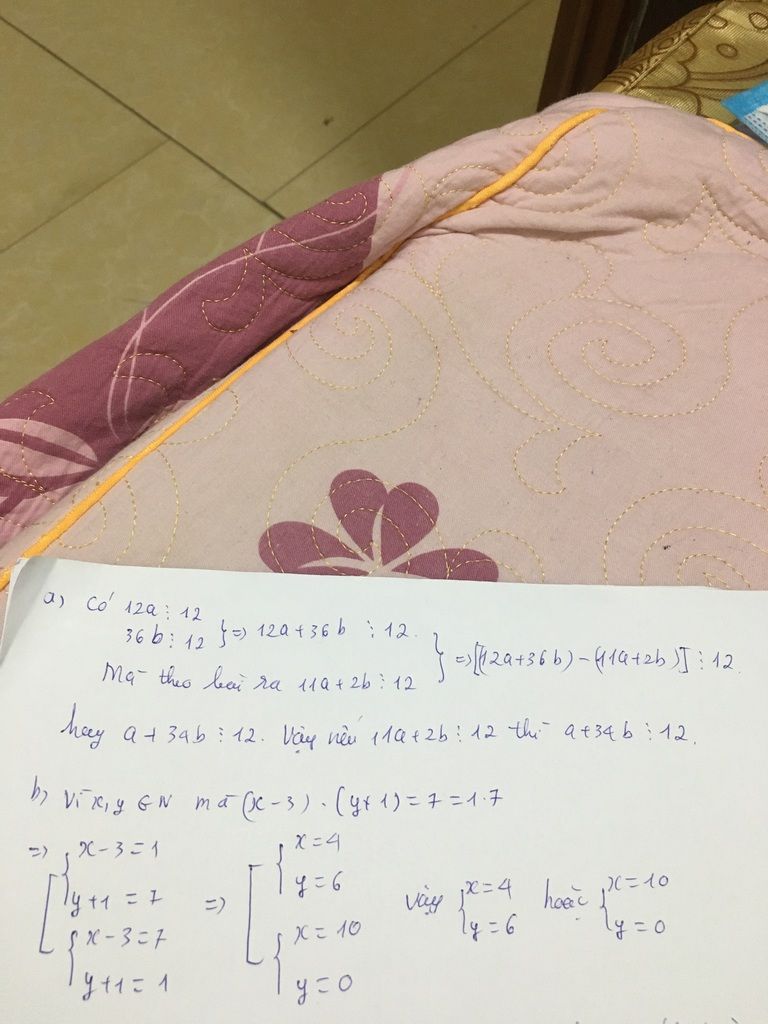 a) Có 12a ⋮ 12
36b ⋮ 12 } => 12a + 36b ⋮ 12.
Mà theo bài ra 11a + 2b ⋮ 12 } => [(12a + 36b) - (11a + 2b)] ⋮ 12.
hay a + 34b ⋮ 12. Vậy nếu 11a + 2b ⋮ 12 thì a + 34b ⋮ 12.
b) Vì x, y ∈ N mà (x - 3) . (y + 1) = 7 = 1.7
=> [ { x - 3 = 1 => [ { x = 4
y + 1 = 7 y = 6 Vậy { x = 4 hoặc { x = 10
{ x - 3 = 7 { x = 10 y = 6 y = 0
y + 1 = 1 y = 0